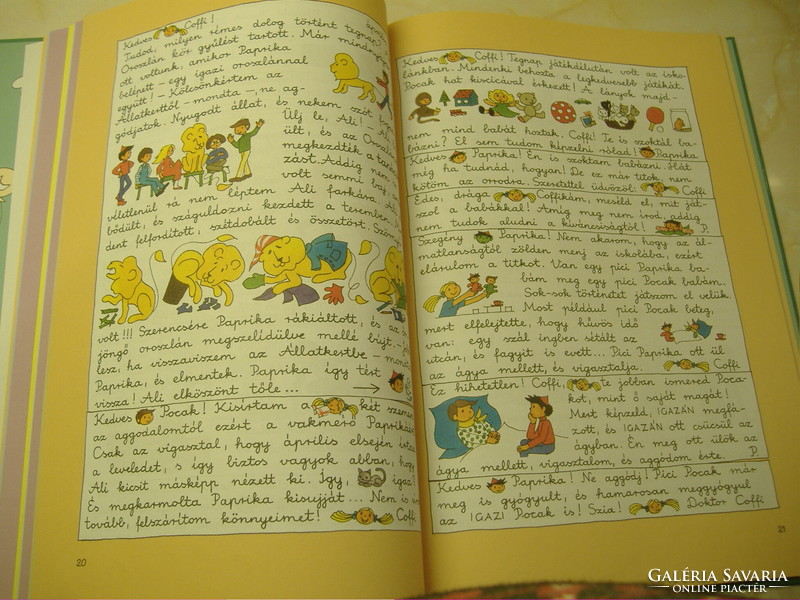 Kedves Coffi!
Tudod, milyen rémes dolog történt tegnap?
Oroszlán kör gyűlést tartott. Már mindenki
ott voltunk, amikor Paprika
belépett – egy igazi oroszlánnal
együtt! – Kölcsönkértem az
Állatkerttől – mondta –, ne ag-
gódjatok. Nyugodt állat, és nekem szót
Ülj le, Ali!
ült, és az Orosz
megkezdték a tar
zást. Addig nem
volt semmi baj,
véletlenül rá nem léptem Ali farkára. Al
bődült, és száguldozni kezdett a teremben.
dent felfordított, szétdobált és összetört. Szörny
volt!!! Szerencsére Paprika rákiáltott, és az
jöngő oroszlán megszelídülve mellé bújt. –
lesz, ha visszaviszem az Állatkertbe – mond
Paprika, és elmentek. Paprika így tért
vissza! Ali elköszönt tőle...
Kedves Pocak! Kisírtam a két szemem
az aggodalomtól ezért a vakmerő Paprikáért
Csak az vigasztal, hogy április elsején írtad
a leveledet, s így biztos vagyok abban, hogy
Ali kicsit másképp nézett ki. Így, igaz?
És megkarmolta Paprika kisujját... Nem is
tovább, felszárítom könnyeimet! Coffi
20
Kedves Coffi! Tegnap játékdélután volt az isko-
lánkban. Mindenki behozta a legkedvesebb játékát.
Pocak hat kiscicával érkezett! A lányok majd-
nem mind babát hoztak. Coffi! Te is szoktál ba-
bázni? El sem tudom képzelni rólad! Paprika
Kedves Paprika! Én is szoktam babázni. Hát
még ha tudnád, hogyan! De ez már titok, nem
kötöm az orrodra. Szeretettel üdvözöl: Coffi
Édes, drága Coffikám, meséld el, mit ját-
szol a babákkal! Amíg meg nem írod, addig
nem tudok aludni a kíváncsiságtól! P.
Szegény Paprika! Nem akarom, hogy az ál-
matlanságtól zölden menj az iskolába, ezért
elárulom a titkot. Van egy pici Paprika ba-
bám meg egy pici Pocak babám.
Sok-sok történetet játszom el velük.
Most például pici Pocak beteg,
mert elfelejtette, hogy hűvös idő
van: egy szál ingben sétált az
utcán, és fagyit is evett... Pici Paprika ott ül
az ágya mellett, és vigasztalja. Coffi
Ez hihetetlen! Coffi, te jobban ismered Poca-
kot, mint ő saját magát!
Mert képzeld, IGAZÁN megfá-
zott, és IGAZÁN ott csücsül az
ágyban. Én meg ott ülök az
ágya mellett, vigasztalom, és aggódom érte. P.
Kedves Paprika! Ne aggódj! Pici Pocak már
meg is gyógyult, és hamarosan meggyógyul
az IGAZI Pocak is! Szia! Doktor Coffi
21
GALÉRIA SAVARIA
ONLINE PIACTÉR